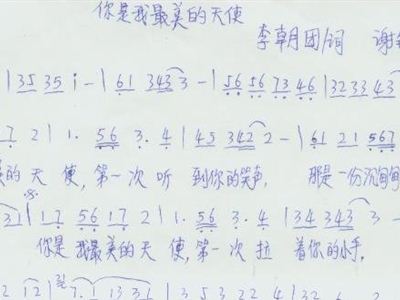 你是我最美的天使
李朝团/词 谢
| 35 35 i - | 61 343 3 - | 56 56 73 46 | 32 33 43
7 2 | 1. 56 3. 4 | 45 342 2 - | 61 21 567
的天使,第一次听到你的笑声,那是一份沉甸甸
31 | 17 56 17 2 | 1. 56 3. 4 | 34 343 3 -
你是我最美的天使,第一次拉着你的小手,
2 12 | 7. | 13 31 | 3 5 3 22 4 | 32